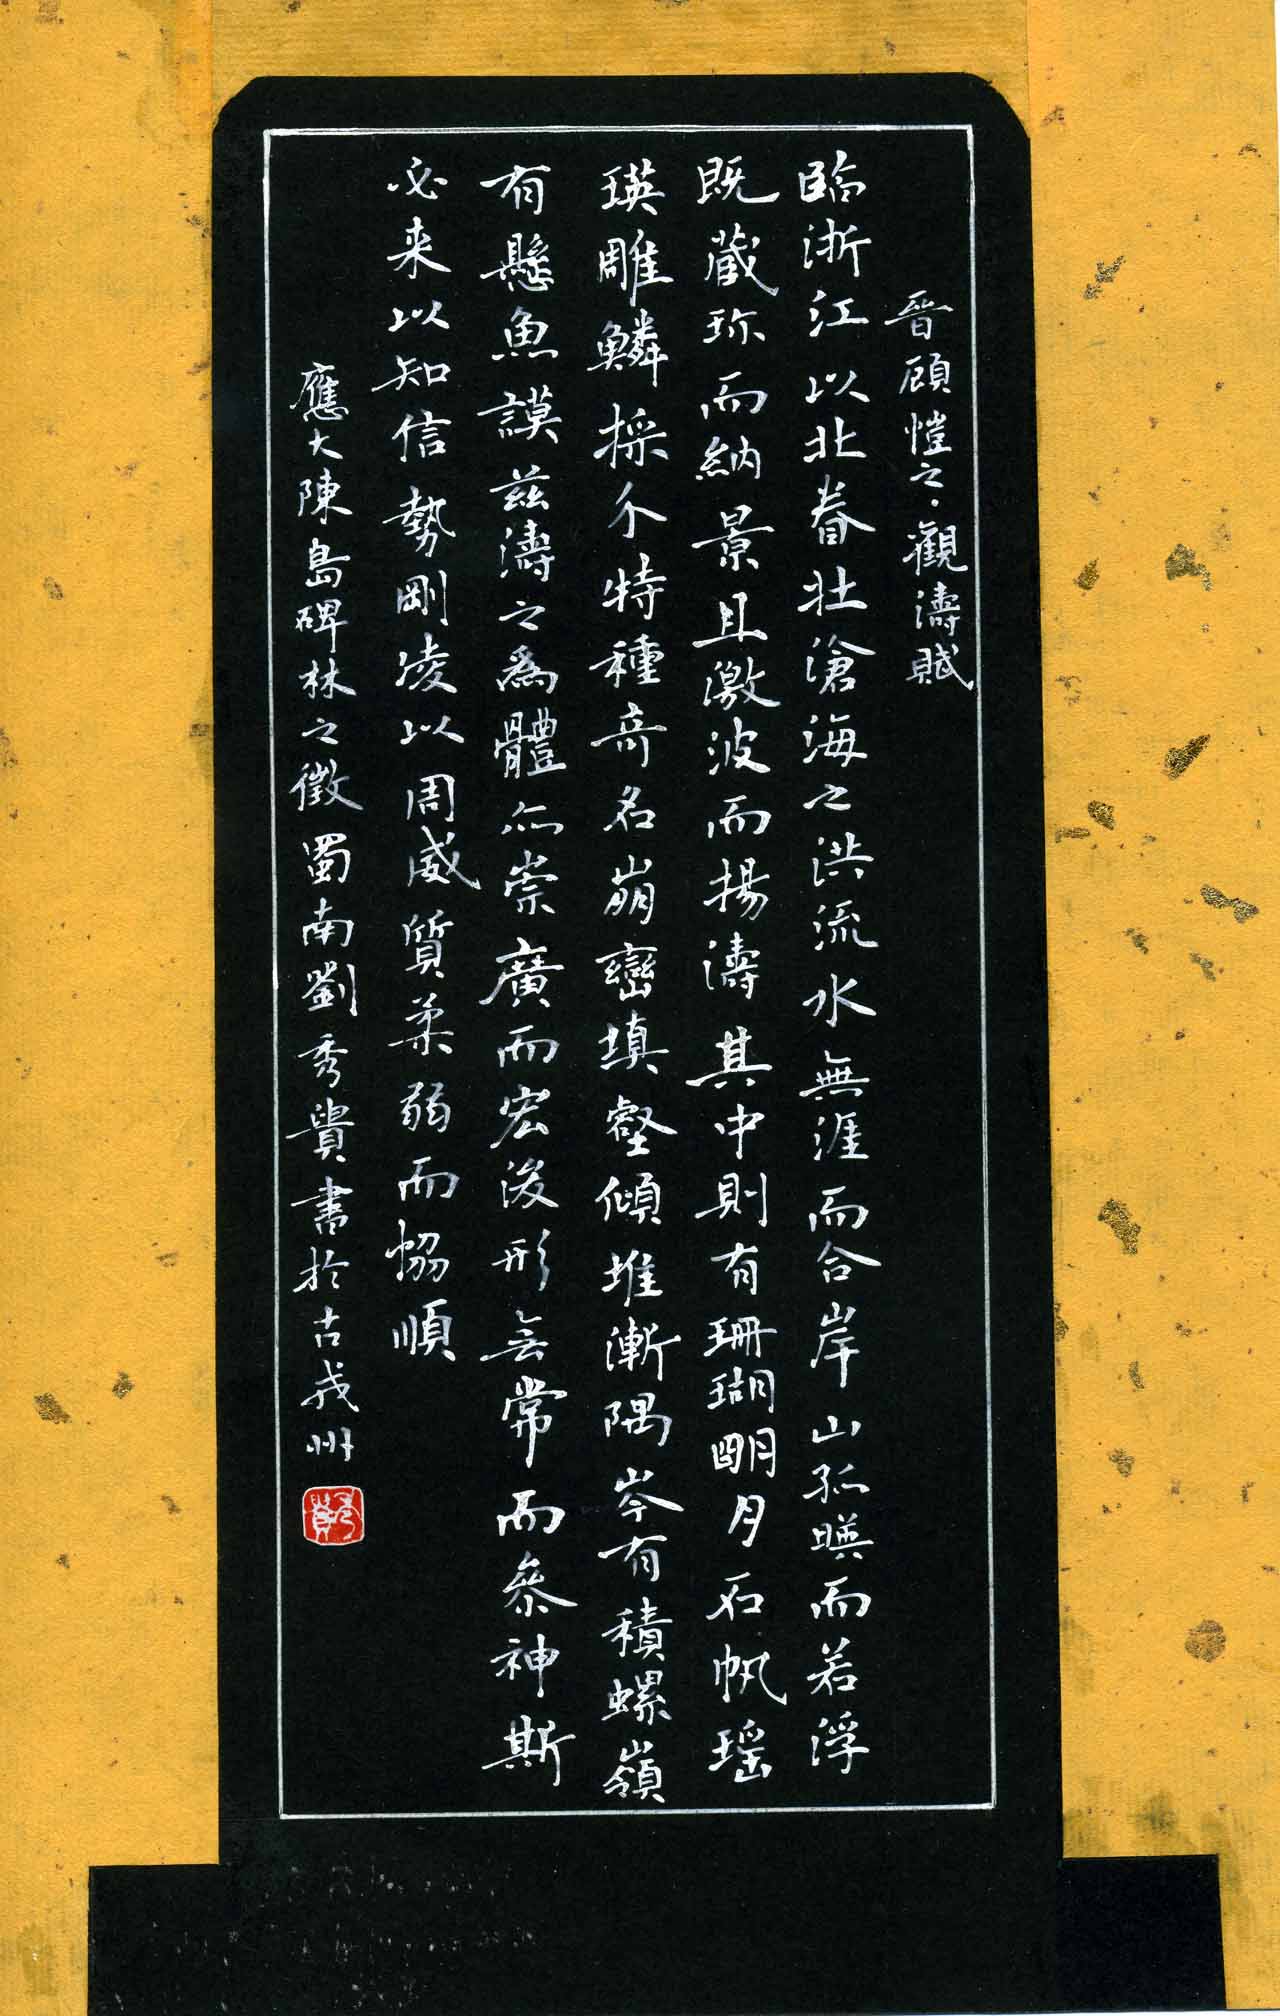 晉顧愷之·觀濤賦
臨浙江以北眷壯滄海之洪流水無涯而合岸山孤暎而若浮
既藏珎而納景且激波而揚濤其中則有珊瑚明月石帆瑶
瑛雕鱗採介特種奇名崩巒填壑傾堆漸隅岑有積螺嶺
有懸魚謨兹濤之為體亦崇廣而宏浚形無常而叅神斯
必来以知信勢剛凌以周威質柔弱而協順
應大陳島碑林之徵蜀南劉秀貴書於古戎州